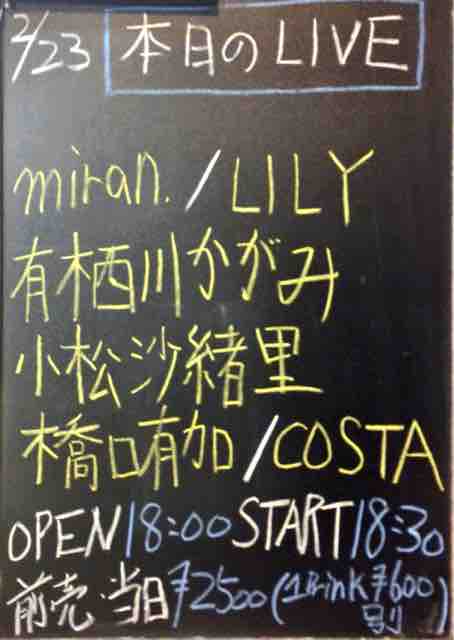 2/23 本日のLIVE
miran. / LILY
有栖川かがみ
小松沙緒里
橋口有加 / COSTA
OPEN 18:00 START 18:30
前売・当日 ¥2500 (1Drink ¥600
別)